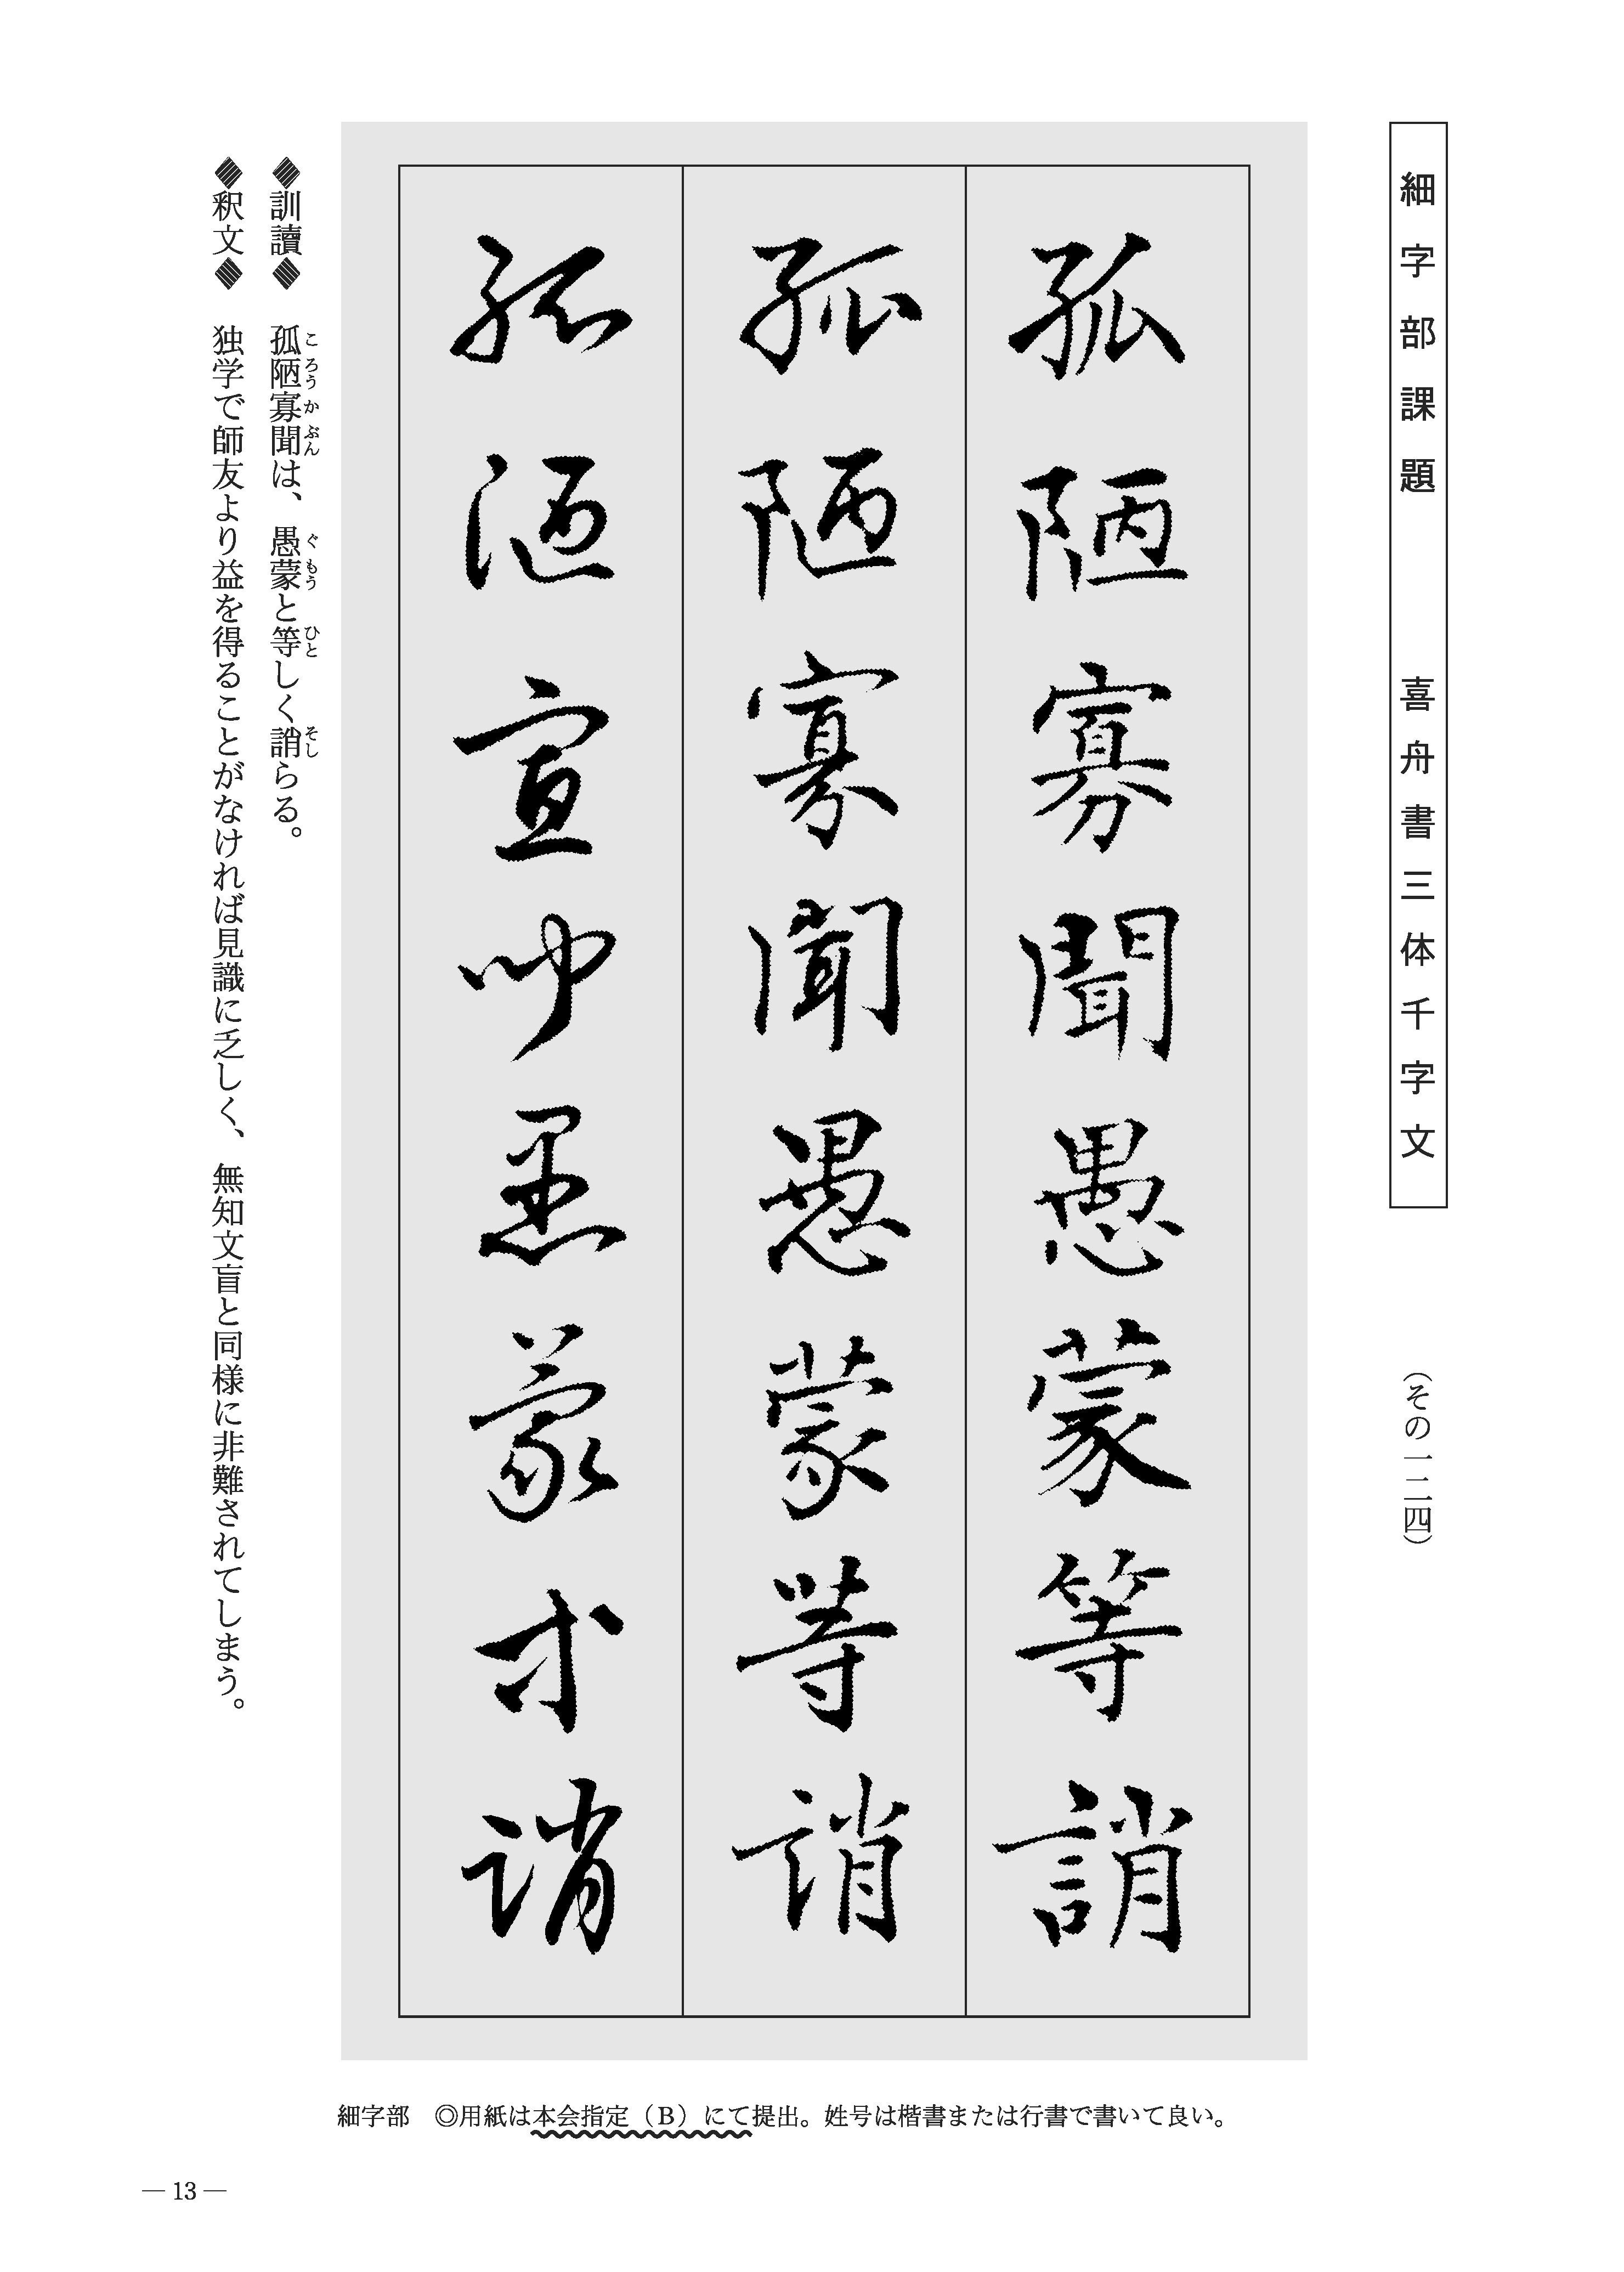 細字部課題　喜舟書三体千字文
（その一二四）
孤陋寡聞愚蒙等誚
孤陋寡聞愚蒙等誚
孤陋寡聞愚蒙等誚
◆訓讀◆　孤陋寡聞は、愚蒙と等しく誚らる。
こ ろう か ぶん ぐ もう ひと そし
◆釈文◆　独学で師友より益を得ることがなければ見識に乏しく、無知文盲と同様に非難されてしまう。
細字部　◎用紙は本会指定（B）にて提出。姓号は楷書または行書で書いて良い。
— 13 —